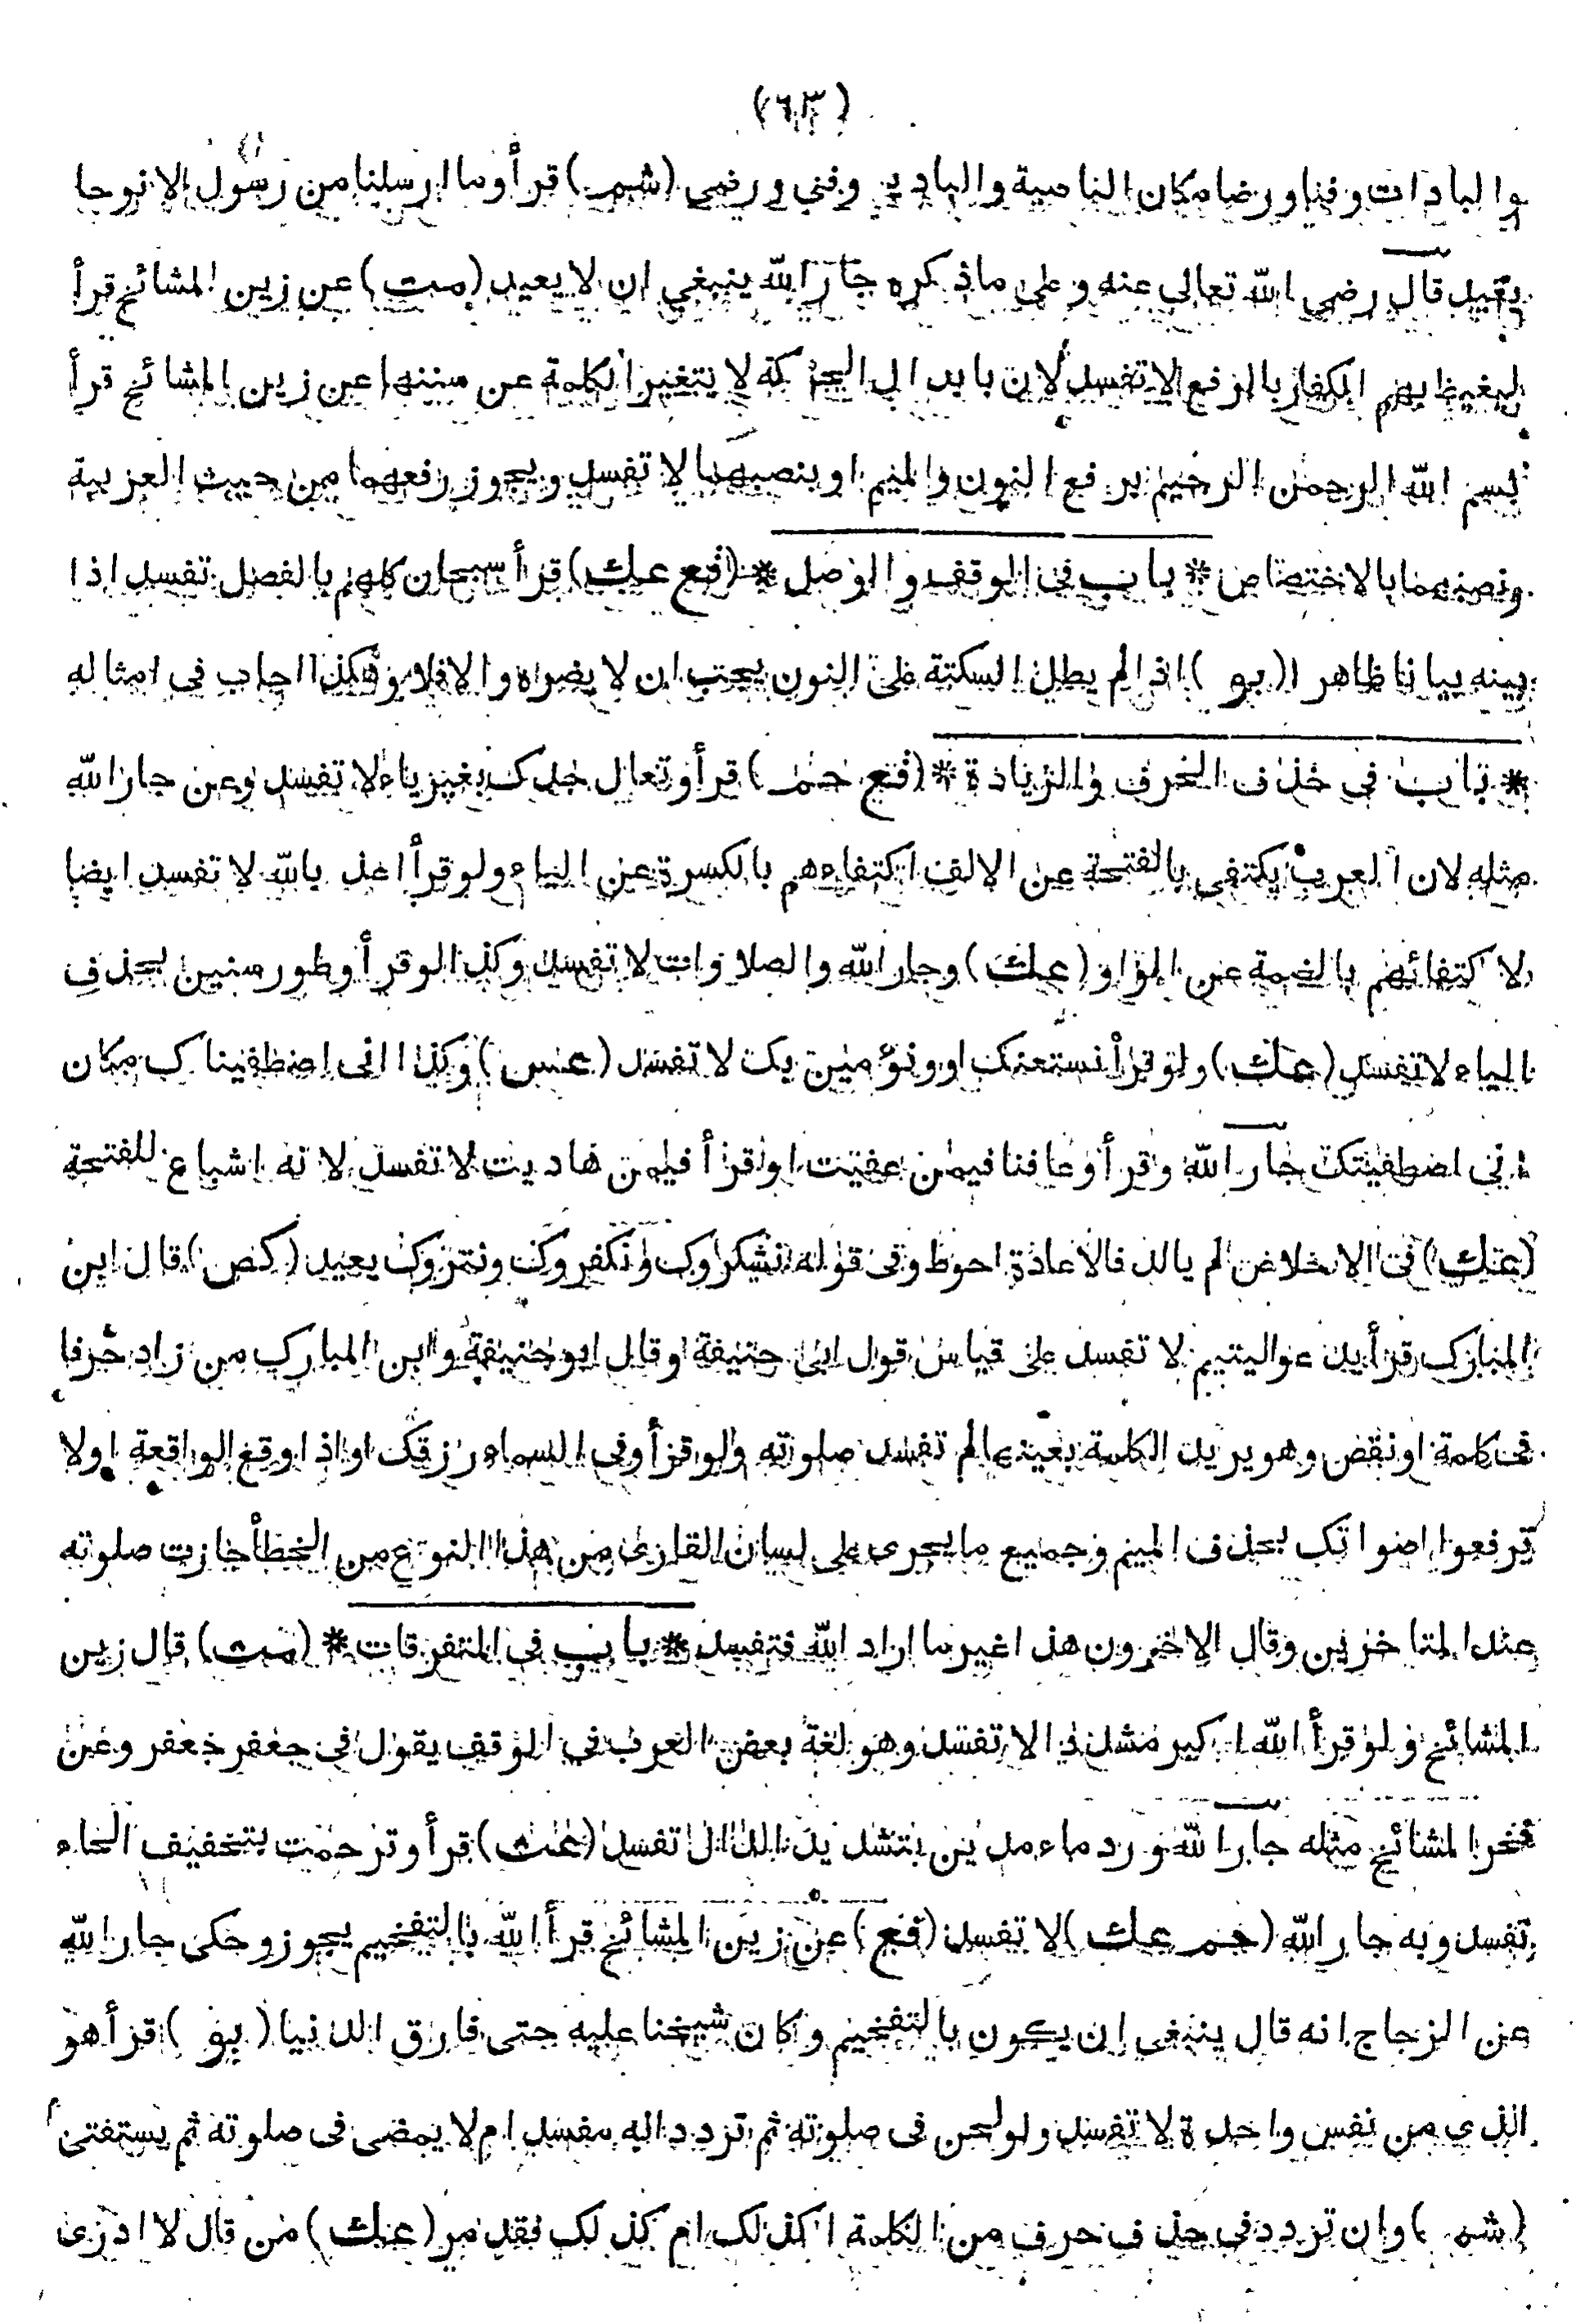 (٦٣)
والبادات وفناو رضا مكان الناصية والبادية وفني ورضي (شم) قرأ وما ارسلنا من رسول الا نوحا
يعيد قال رضي الله تعالى عنه وعلى ما ذكره جار الله ينبغي ان لا يعيد (مت) عن زين المشائخ قرأ
ليغيظ بهم الكفار بالرفع لا تفسد لان بابدال الحركة لا يتغير الكلمة عن سننها عن زين المشائخ قرأ
بسم الله الرحمن الرحيم برفع النون والميم او بنصبهما لا تفسد ويجوز رفعهما من حيث العربية
ونصبهما بالاختصاص * باب في الوقف والوصل * (قع عك) قرأ سبحان كلهم بالفصل تفسد اذا
بينه بيانا ظاهرا (بو) اذا لم يطل السكتة على النون يجب ان لا يضره والا فلا وهكذا اجاب في امثاله
* باب في حذف الحرف والزيادة * (قع حم) قرأ وتعال جدك بغير ياء لا تفسد وعن جار الله
مثله لان العرب يكتفى بالفتحة عن الالف اكتفاءهم بالكسرة عن الياء ولو قرأ اعذ بالله لا تفسد ايضا
لاكتفائهم بالضمة عن الواو (عك) وجار الله والصلاوات لا تفسد وكذا لو قرأ وطور سنين بحذف
الياء لا تفسد (عك) ولو قرأ نستعنك او ونؤمين بك لا تفسد (عس) وكذا اني اصطفيناك مكان
اني اصطفيتك جار الله وقرأ وعافنا فيمن عفيت او قرأ فيمن هاديت لا تفسد لانه اشباع للفتحة
(عك) في الاخلاص لم يالد فالاعادة احوط وفي قوله نشكروك ونكفروك ونتروك يعيد (كص) قال ابن
المبارك قرأ يدءو اليتيم لا تفسد على قياس قول ابي حنيفة وقال ابو حنيفة وابن المبارك من زاد حرفا
في كلمة او نقص وهو يريد الكلمة بعينها لم تفسد صلوته ولو قرأ وفي السماء رزقك او اذا وقع الواقعة او لا
ترفعوا اصواتك بحذف الميم وجميع ما يجري على لسان القارئ من هذا النوع من الخطأ جازت صلوته
عند المتاخرين وقال الاخرون هذا غير ما اراد الله فتفسد * باب في المتفرقات * (مت) قال زين
المشائخ ولو قرأ الله اكبر مشددا لا تفسد وهو لغة بعض العرب في الوقف يقول في جعفر جعفر وعن
فخر المشائخ مثله جار الله ورد ماء مدين بتشديد الدال تفسد (عت) قرأ وترحمت بتخفيف الحاء
تفسد وبه جار الله (خم عك) لا تفسد (قع) عن زين المشائخ قرأ الله بالتفخيم يجوز وحكى جار الله
عن الزجاج انه قال ينبغي ان يكون بالتفخيم وكان شيخنا عليه حتى فارق الدنيا (بو) قرأ هو
الذي من نفس واحدة لا تفسد ولو لحن في صلوته ثم تردد اله مفسد ام لا يمضى في صلوته ثم يستفتى
(شم) وان تردد في حذف حرف من الكلمة اكذلك ام كذلك فقد مر (عك) من قال لا ادرى